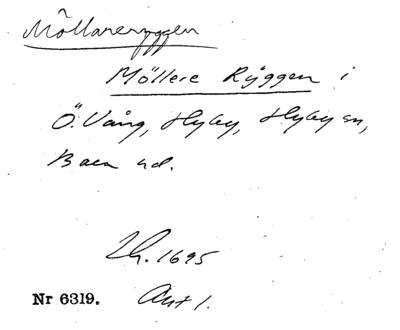 Möllareryggen
Möllere Ryggen i
Ö. Vång, Hyby, Hyby sn,
Bara hd.
Lh. 1695
Nr 6319. Akt 1.